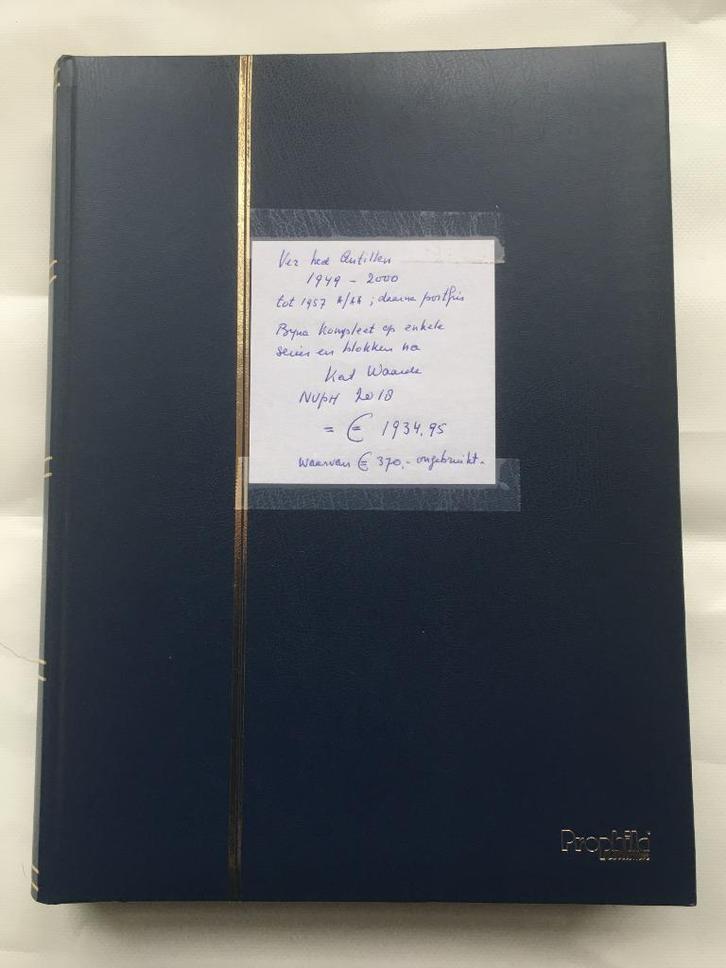 Ver Ned Antillen
1949 - 2000
tot 1957 */** ; daarna postfris
Byna kompleet op enkele
series en blokken na
Kat Waarde
NVPH 2018
= € 1934,95
waarvan € 370,- ongebruikt.
Prophila